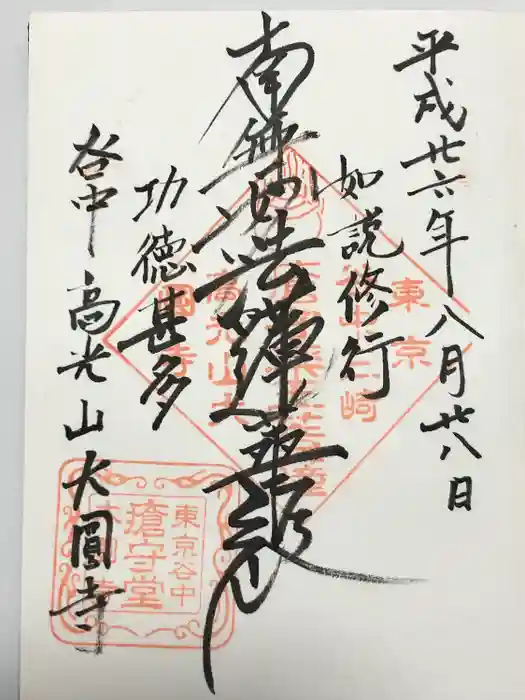 平成廿六年八月廿八日
如説修行
南無妙法蓮華経
功徳甚多
谷中高光山大圓寺
東京
高光山大
圓寺
東京谷中
瘡守堂